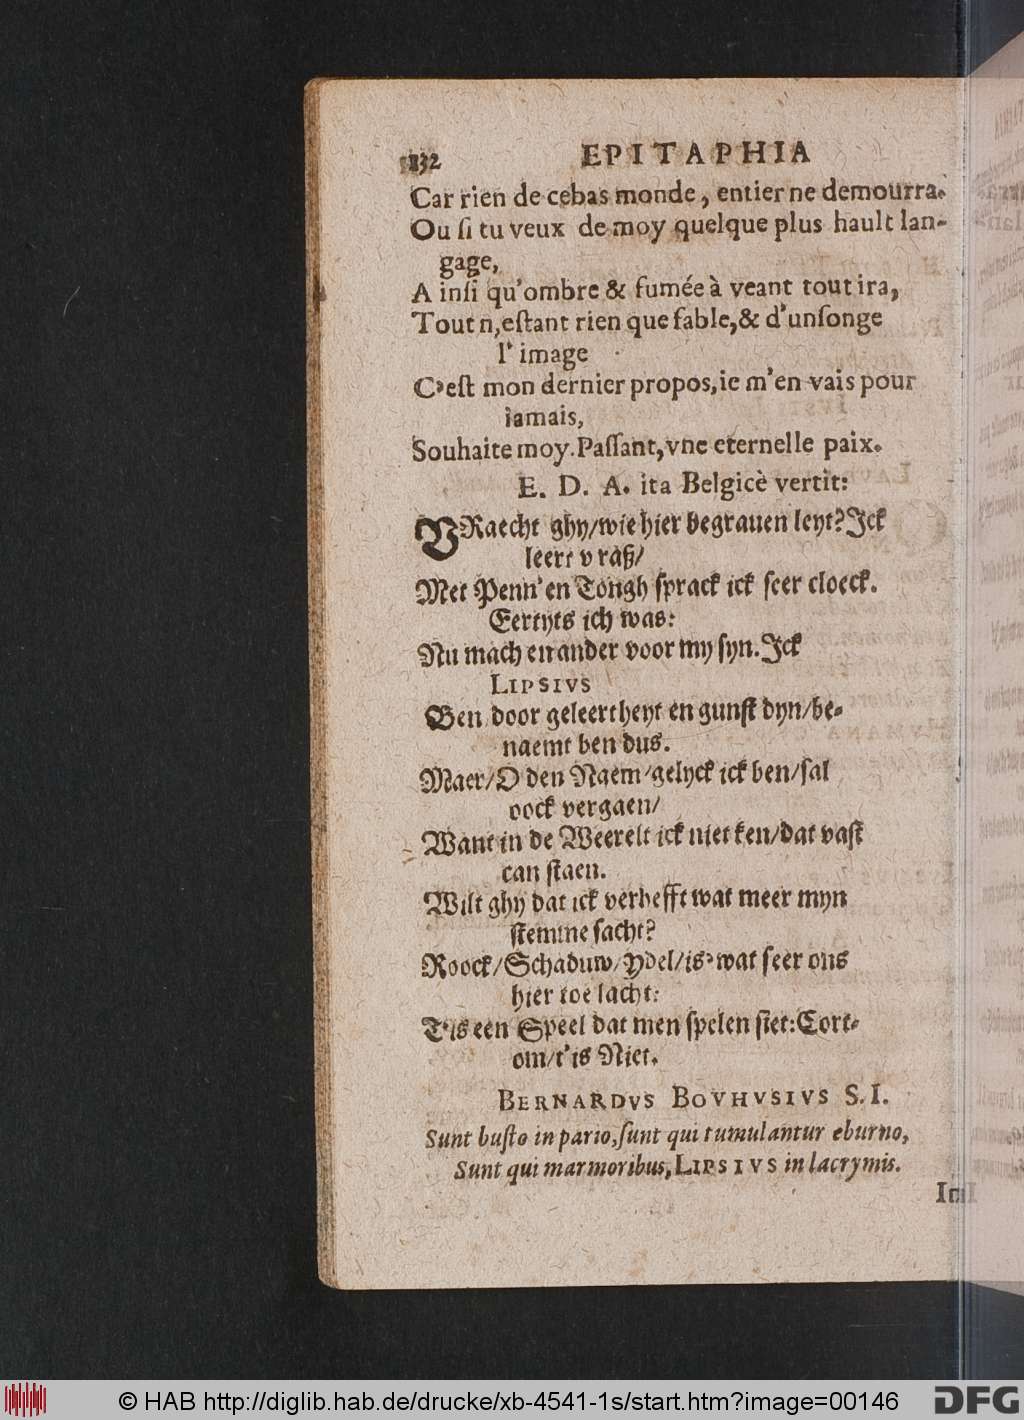 132 EPITAPHIA
Car rien de cebas monde, entier ne demourra.
Ou ſi tu veux de moy quelque plus hault lan-
gage,
A inſi qu'ombre & fumée à veant tout ira,
Tout n,eſtant rien que fable,& d'unſonge
l' image
C'eſt mon dernier propos,ie m'en vais pour
iamais,
Souhaite moy.Paſſant,vne eternelle paix.
E. D. A. ita Belgicè vertit:
VRaecht ghy/wie hier begrauen leyt?Ick
leert v ràß/
Met Penn' en Tongh ſprack ick ſeer cloeck.
Eertyts ich was:
Nu mach en ander voor my ſyn.Ick
LIPSIVS
Ben door geleertheyt en gunſt dyn/be-
naemt ben dus.
Maer/O den Naem/gelyck ick ben/ſal
oock vergaen/
Want in de Weerelt ick niet ken/dat vaſt
can ſtaen.
Wilt ghy dat ick verhefft wat meer myn
ſtemme ſacht?
Roock/Schaduw/Ydel/is'wat ſeer ons
hier toe lacht:
T'is een Speel dat men ſpelen ſiet:Cort-
om/t'is Niet.
BERNARDVS BOVHVSIVS S.I.
Sunt buſto in pario,ſunt qui tumulantur eburno,
Sunt qui marmoribus,LIPSIVS in lacrymis.
© HAB http://diglib.hab.de/drucke/xb-4541-1s/start.htm?image=00146 DFG